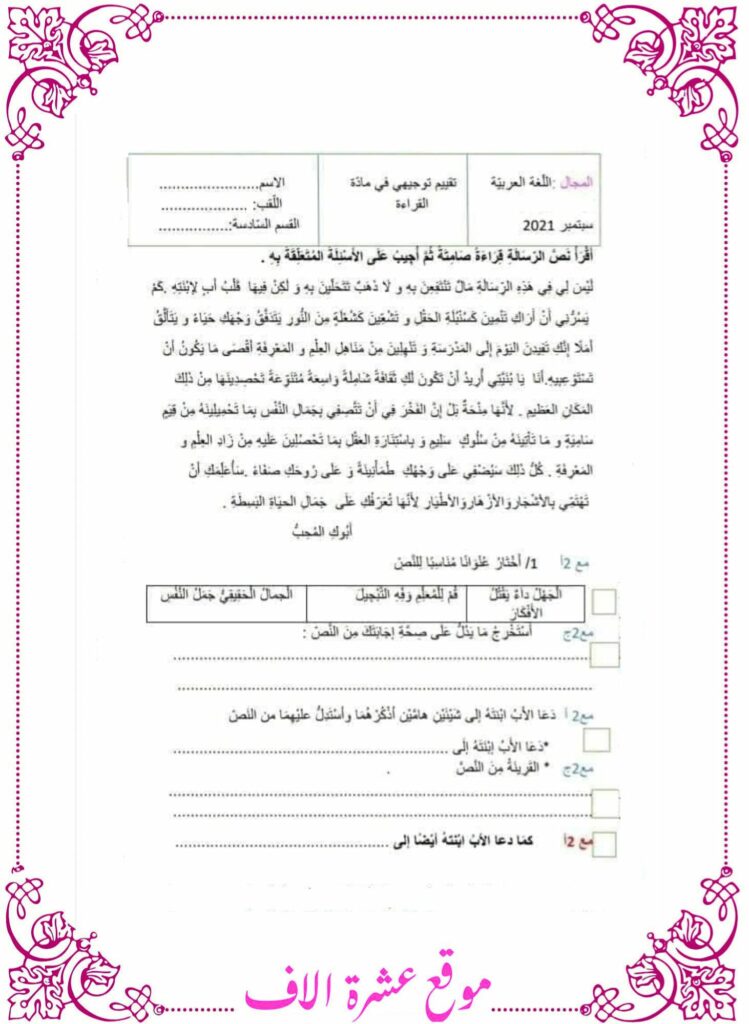 المجال :اللّغة العربيّة
سبتمبر 2021
تقييم توجيهي في مادّة
القراءة
الاسم.......................
اللّقب: ....................
القسم السّادسة:................
أَقْرَأُ نَصَّ الرِّسَالَةِ قِرَاءَةً صَامِتَةً ثُمَّ أُجِيبُ عَلَى الأَسْئِلَةِ المُتَعَلِّقَةِ بِهِ .
لَيْسَ لِي فِي هَذِهِ الرِّسَالَةِ مَالٌ تَنْتَفِعِينَ بِهِ و لَا ذَهَبٌ تَتَحَلَّيْنَ بِهِ وَ لَكِنْ فِيهَا قَلْبُ أَبٍ لِإبْنَتِهِ .كَمْ
يَسُرُّنِي أَنْ أَرَاكِ تَنْمِينَ كَسُنْبُلَةِ الحَقْلِ و تَشُعِّينَ كَشُعْلَةٍ مِنَ النُّورِ يَتَدَفَّقُ وَجْهُكِ حَيَاءً و يَتَأَلَّقُ
أَمَلًا إِنَّكِ تَفِيدِنَ اليَوْمَ إِلَى المَدْرَسَةِ وَ تَنْهَلِينَ مِنْ مَنَاهِلِ العِلْمِ و المَعْرِفَةِ أَقْصَى مَا يَكُونُ أَنْ
تَسْتَوْعِبِيهِ.أَنَا يَا بُنَيَّتِي أُرِيدُ أَنْ تَكُونَ لَكِ ثَقَافَةٌ شَامِلَةٌ وَاسِعَةٌ مُتَنَوِّعَةٌ تَحْصِدِينَهَا مِنْ ذَلِكَ
المَكَانِ العَظِيمِ . لأَنَّهَا مِنْحَةٌ بَلْ إِنَّ الفَخْرَ فِي أَنْ تَتَّصِفِي بِجَمَالِ النَّفْسِ بِمَا تَحْمِلِينَهُ مِنْ قِيَمٍ
سَامِيَةٍ و مَا تَأْتِينَهُ مِنْ سُلُوكٍ سَلِيمٍ وَ بِاسْتِنَارَةِ العَقْلِ بِمَا تَحْصُلِينَ عَلَيْهِ مِنْ زَادِ العِلْمِ و
المَعْرِفَةِ . كُلُّ ذَلِكَ سَيُضْفِي عَلَى وَجْهِكِ طُمَأْنِينَةً وَ عَلَى رُوحَكِ صَفَاءً .سَأُعَلِّمُكِ أَنْ
تَهْتَمِّي بِالأَشْجَارِوَالأَزْهَارِوَالأَطْيَارِ لأَنَّهَا تُعَرِّفُكِ عَلَى جَمَالِ الحَيَاةِ البَسِطَةِ .
أَبُوكِ المُحِبُّ
مع 2أ 1/ أَخْتَارُ عُنْوَانًا مُنَاسِبًا لِلنَّصّ
الْجَهْلُ دَاءٌ يَقْتُلُ الأَفْكَارَ
قُمْ لِلْمُعَلِّمِ وَفِّهِ التَّبْجِيلَ
الْجمالُ الْحَقِيقِيُّ جَمَلُ النَّفْسِ
مع2ج أَسْتَخْرِجُ مَا يَدُلُّ عَلَى صِحَّةِ إِجَابَتِكَ مِنَ النَّصِّ :
................................................................
................................................................
مع2 أ دَعَا الأَبُ ابْنَتَهُ إلى شَيْئَيْنِ هَامَّيْنِ أَذْكُرْهُمَا وأَسْتَدِلُّ عليْهِمَا من النَصّ
*دَعَا الأَبُ إِبْنَتَهُ إِلَى ..........................................
مع2ج * القَرِينَةُ مِنَ النَّصِّ .
................................................................
................................................................
مع 2أ كَمَا دعا الأبُ ابْنَتهُ أَيْضًا إلى .................................
موقع عشرة الاف